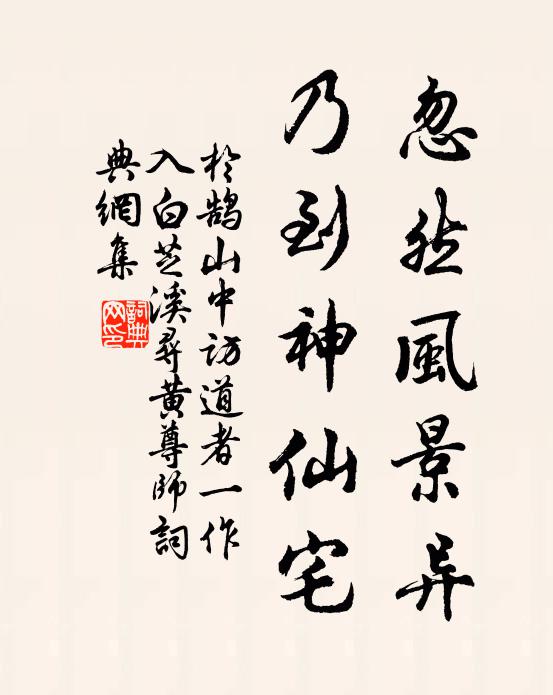 忽然風景异
乃到神仙宅
於鵠山中訪道者一作
入白芝溪尋黃尊師詞
典網集
詞典網印